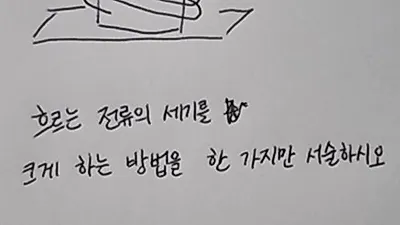 흐르는 전류의 세기를
크게 하는 방법을 한 가지만 서술하시오